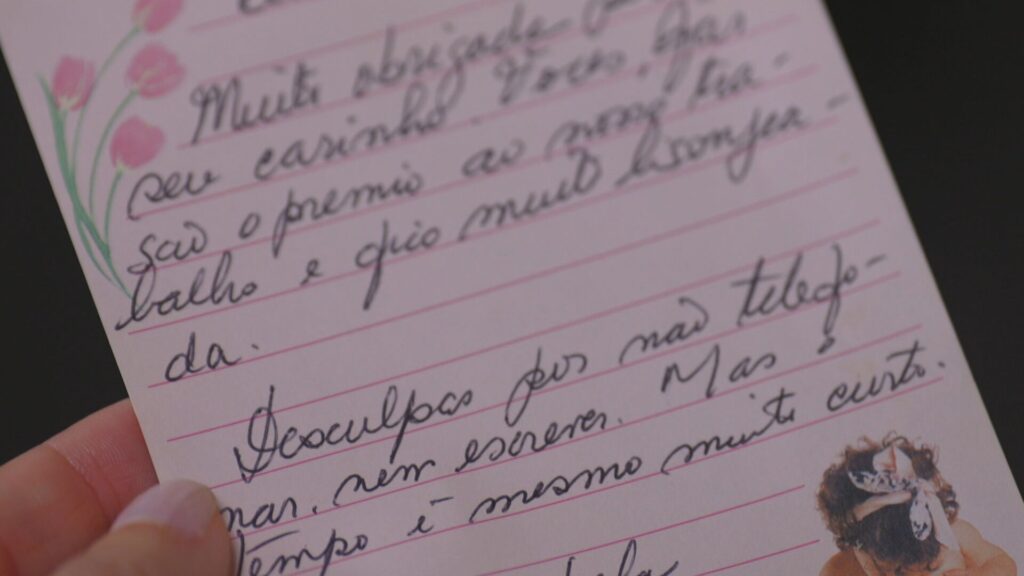 Muito obrigada
seu carinho. Vocês,
são o premio ao nosso tra-
balho e fico muito lisonjea-
da.
Desculpas por não telefo-
nar, nem escrever. Mas o
tempo é mesmo muito curto.